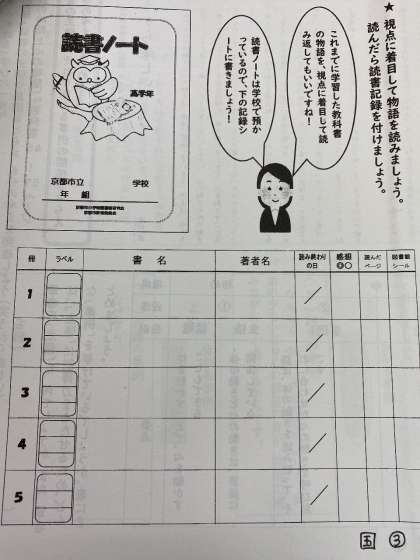 ★ 視点に着目して物語を読みましょう。
読んだら読書記録を付けましょう。
これまでに学習した教科書
の物語を、視点に着目して読
み返してもいいですね！
読書ノートは学校で預か
っているので、下の記録シ
ートに書きましょう！
読書ノート
高学年
京都市立 学校
年 組
冊 ラベル 書名 著者名 読み終わりの日 感想◎○ 読んだページ 図書館シール
1 ／
2 ／
3 ／
4 ／
5 ／
国 ③